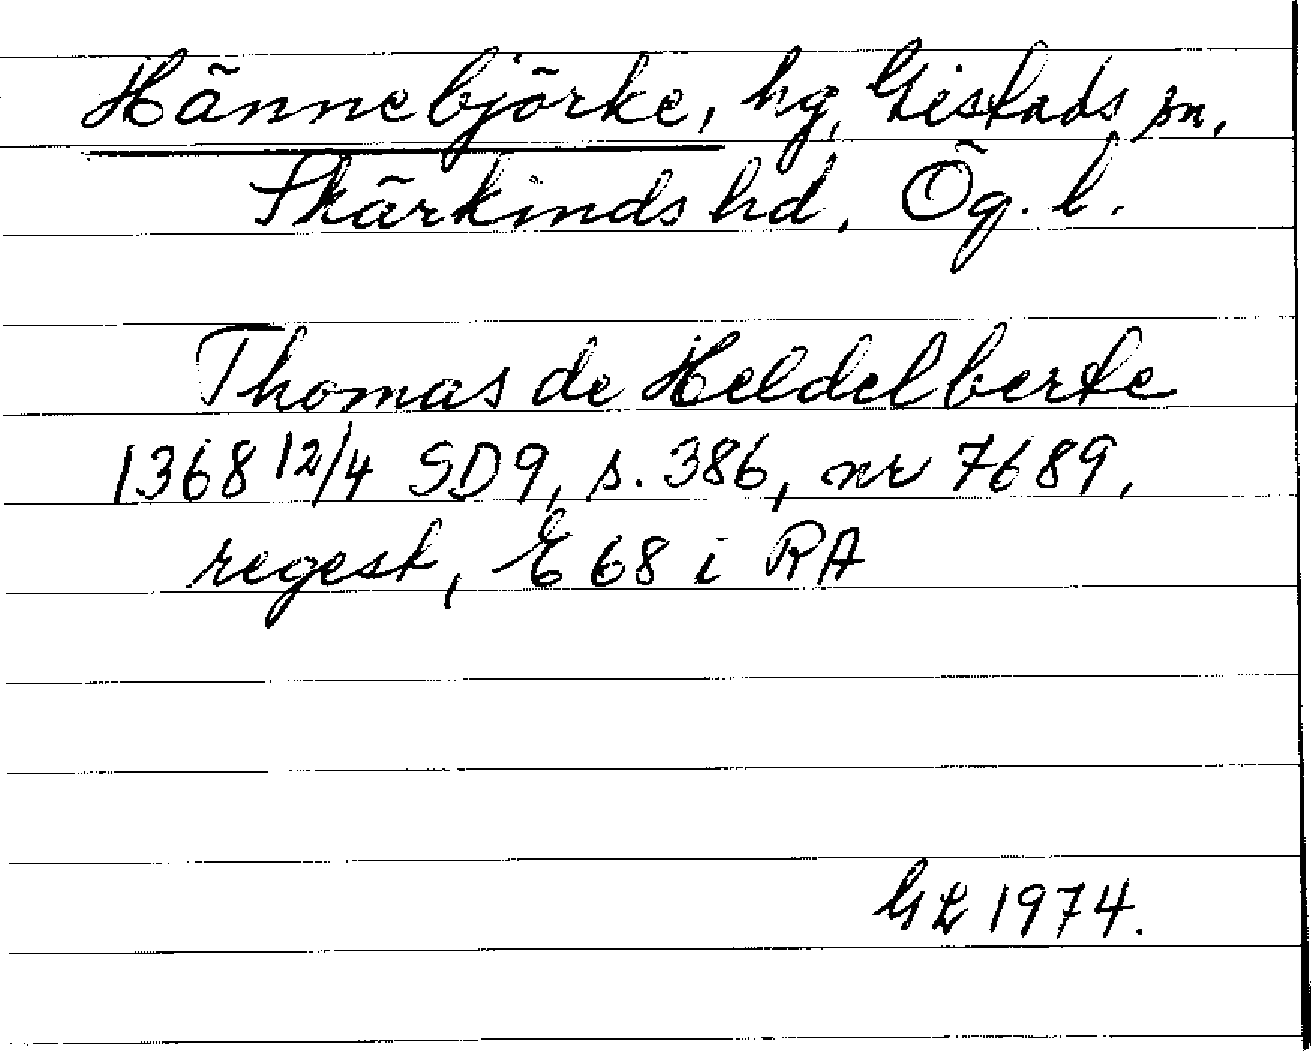 Hännebjörke, hg, Gistads sn,
Skärkinds hd, Ög. l.
Thomas de Heldelberke
1368 12/4 SD9, s. 386, nr 7689,
regest, E 68 i RA
GL 1974.